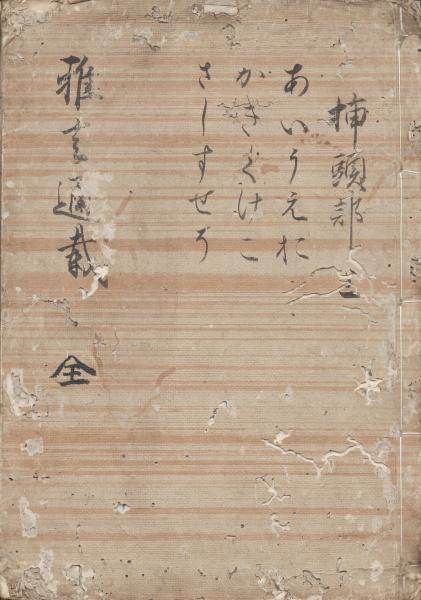 挿頭部
あいうえお
かきくけこ
さしすせそ
雅言通載 全